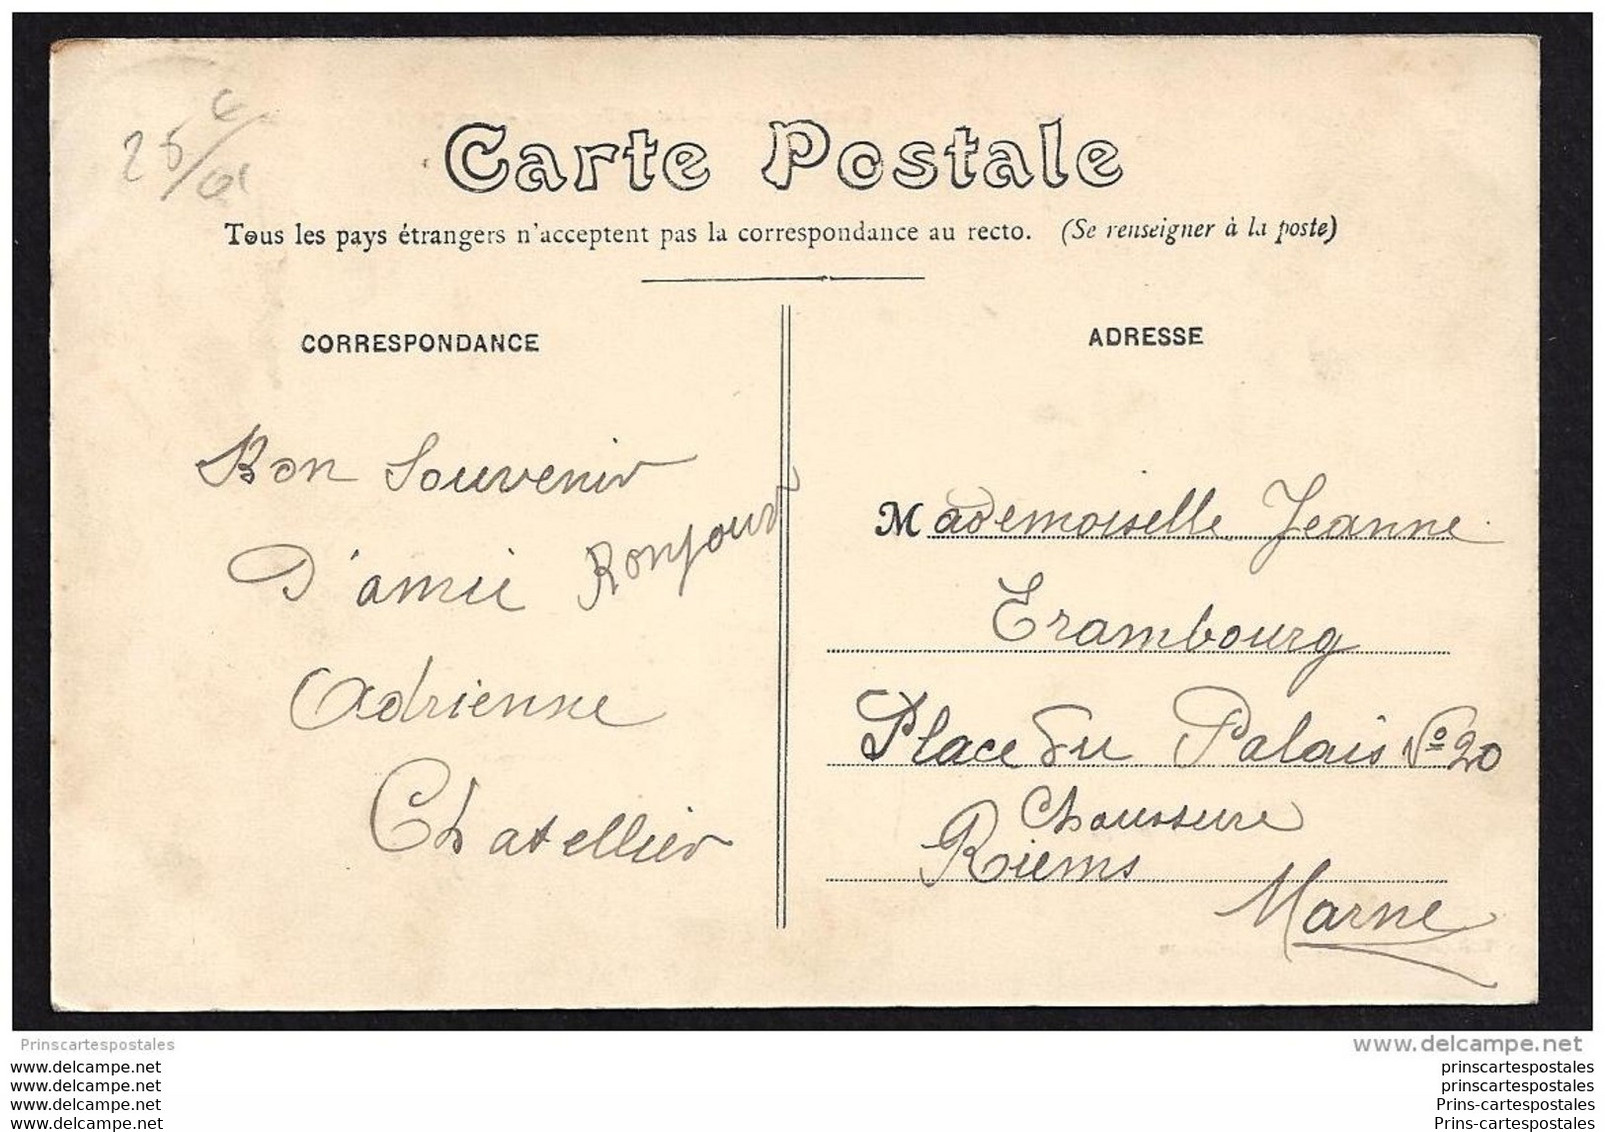 Carte Postale
Tous les pays étrangers n'acceptent pas la correspondance au recto. (Se renseigner à la poste)
CORRESPONDANCE
Bon Souvenir
D'amie Bonjour
Adrienne
Chatellier
ADRESSE
Mademoiselle Jeanne
Erambourg
Place du Palais No 20
Chaussure
Riems
Marne
Prinscartespostales
www.delcampe.net
www.delcampe.net
www.delcampe.net
www.delcampe.net
www.delcampe.net
prinscartespostales
prinscartespostales
Prins-cartespostales
Prins-cartespostales